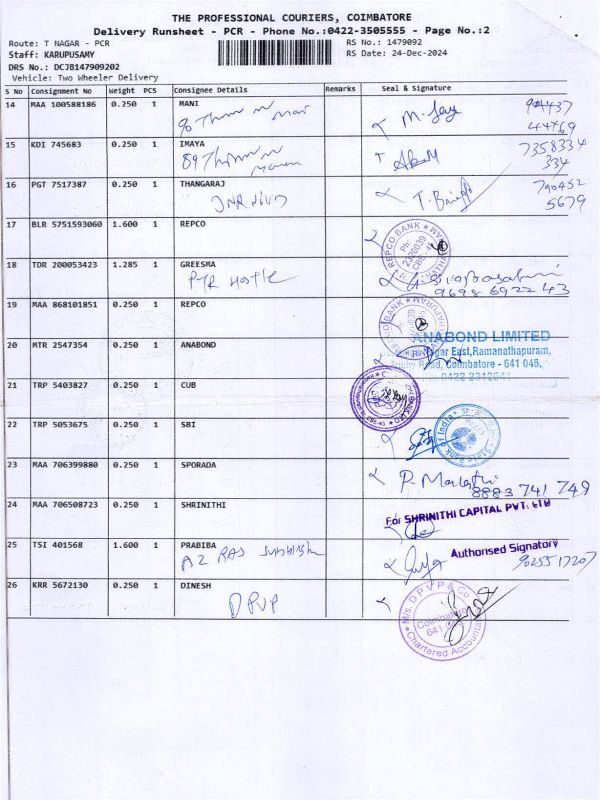 THE PROFESSIONAL COURIERS, COIMBATORE
Delivery Runsheet - PCR - Phone No.:0422-3505555 - Page No.:2
Route: T NAGAR - PCR RS No.: 1479092
Staff: KARUPUSAMY RS Date: 24-Dec-2024
DRS No.: DCJB147909202
Vehicle: Two Wheeler Delivery
S No Consignment No Weight PCS Consignee Details Remarks Seal & Signature
14 MAA 100588186 0.250 1 MANI
M. Jay
15 KDI 745683 0.250 1 IMAYA 7358334
334
16 PGT 7517387 0.250 1 THANGARAJ
5679
17 BLR 5751593060 1.600 1 REPCO
REPCO BANK
18 TDR 200053423 1.285 1 GREESMA
PTR Hostle
9698 692243
19 MAA 868101851 0.250 1 REPCO
20 MTR 2547354 0.250 1 ANABOND ANABOND LIMITED
Nagar East,Ramanathapuram,
Road, Coimbatore - 641 045.
21 TRP 5403827 0.250 1 CUB
22 TRP 5053675 0.250 1 SBI
State Bank of India
23 MAA 706399880 0.250 1 SPORADA P. Malathi
8883 741 749
24 MAA 706508723 0.250 1 SHRINITHI For SHRINITHI CAPITAL PVT. LTD
25 TSI 401568 1.600 1 PRABIBA Authorised Signatory
A2 RAJ
9025517207
26 KRR 5672130 0.250 1 DINESH
DPVP
M/s. D P V P & Co
Coimbatore
641
Chartered Accountants